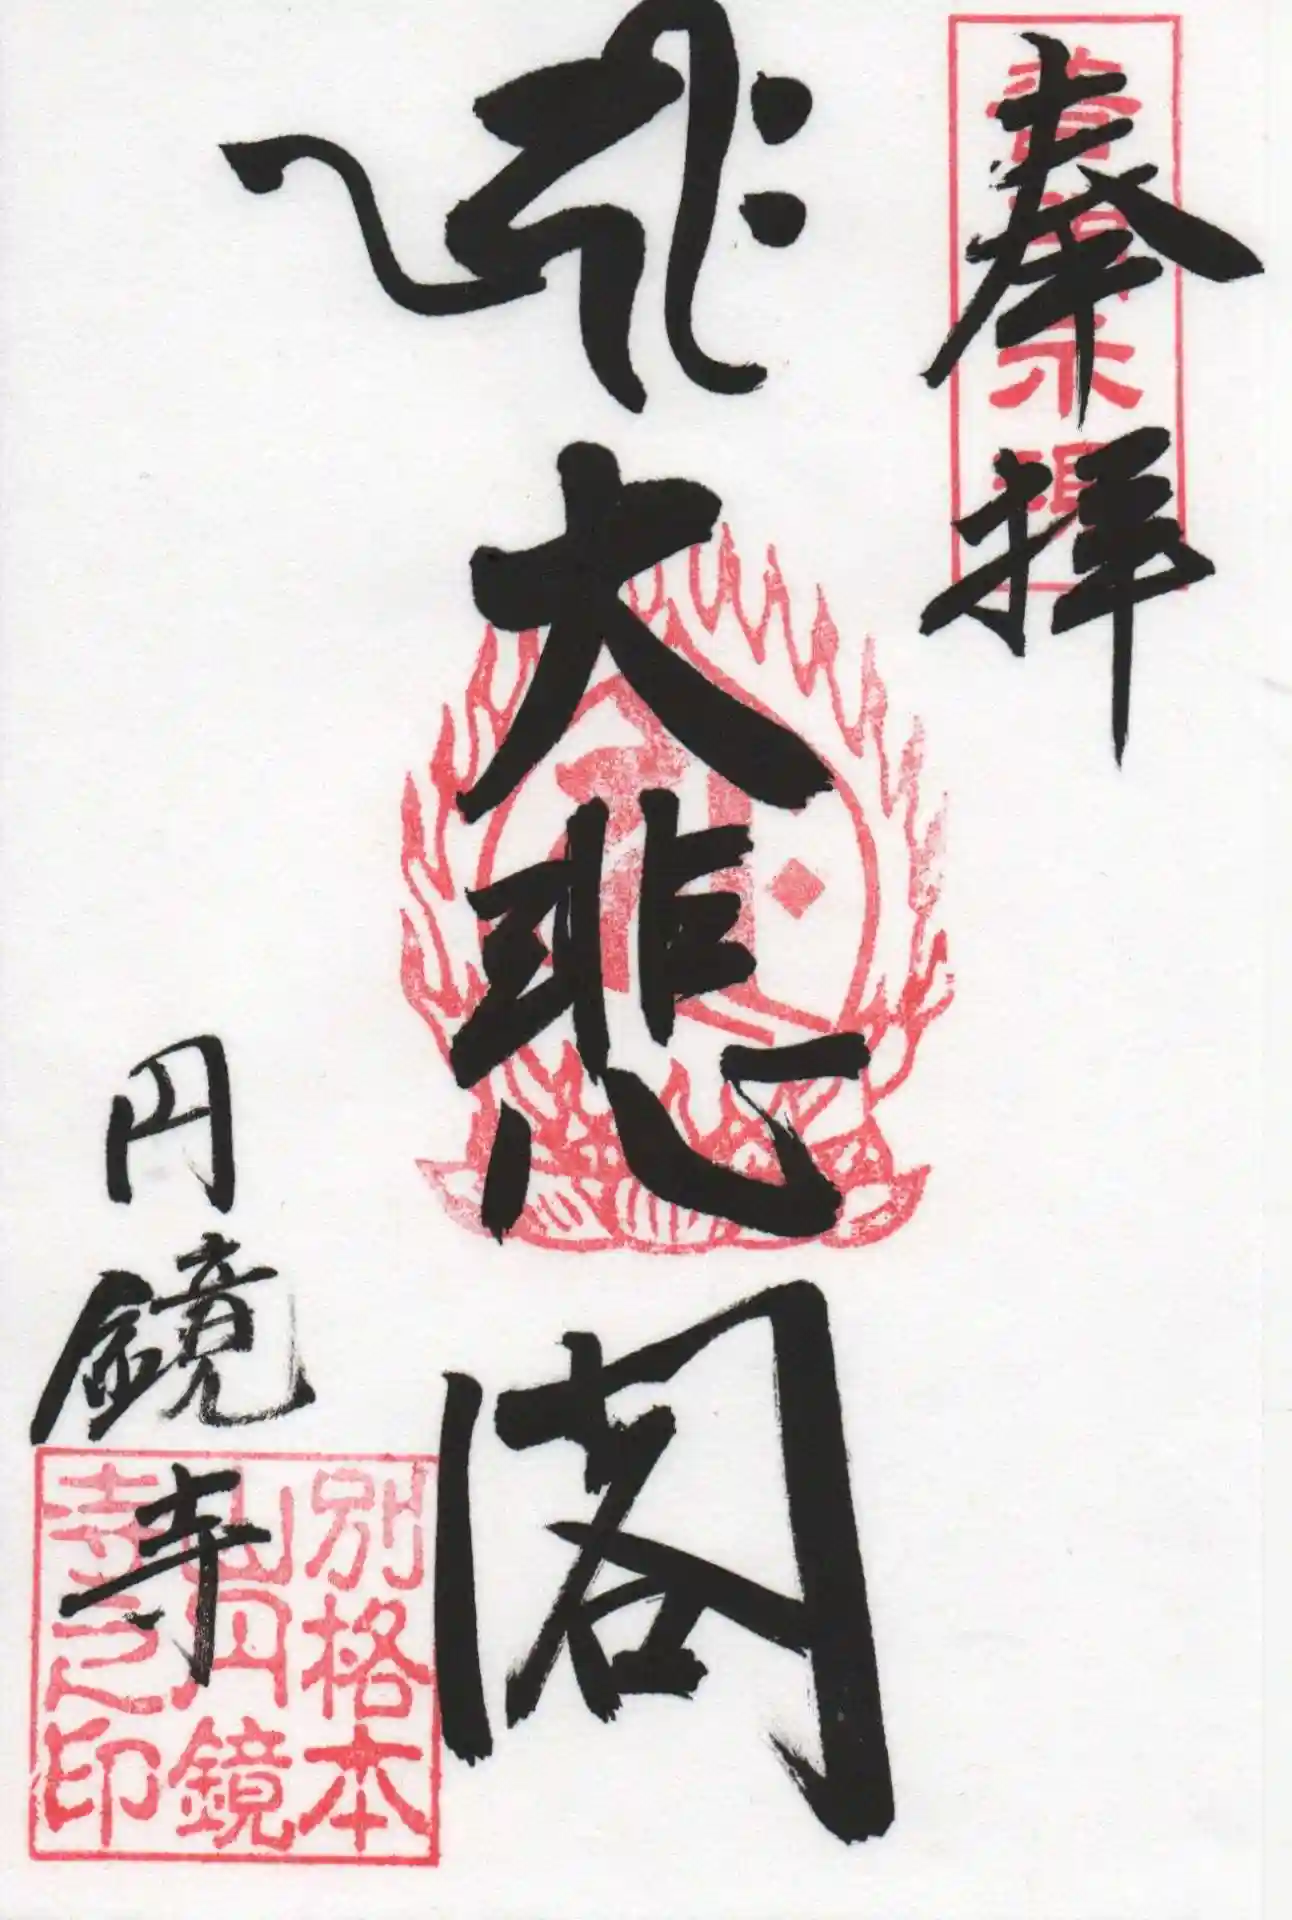 奉拝
大悲閣
円鏡寺
別格本
山円鏡
寺之印